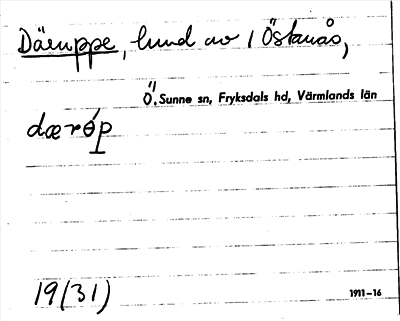 Däruppe, lund av 1 Östanås,
Ö. Sunne sn, Fryksdals hd, Värmlands län
dæróp
19(31)
1911-16